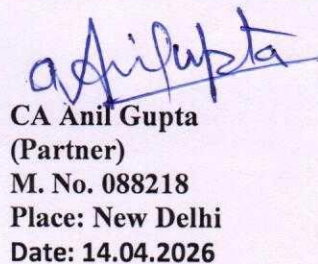 aAnilgupta
CA Anil Gupta
(Partner)
M. No. 088218
Place: New Delhi
Date: 14.04.2026